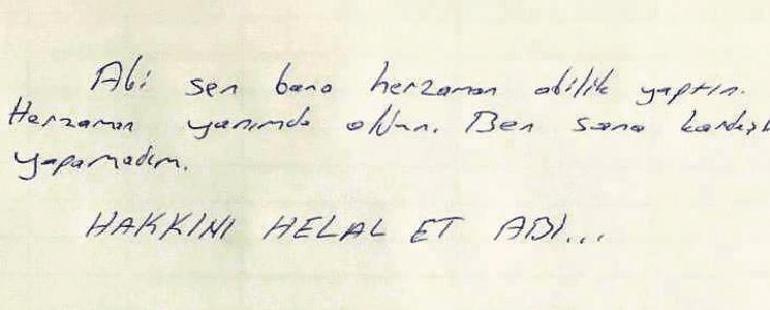 Abi sen bana herzaman abilik yaptın.
Herzaman yanımda oldun. Ben sana kardeşl
yapamadım.
HAKKINI HELAL ET ABİ...